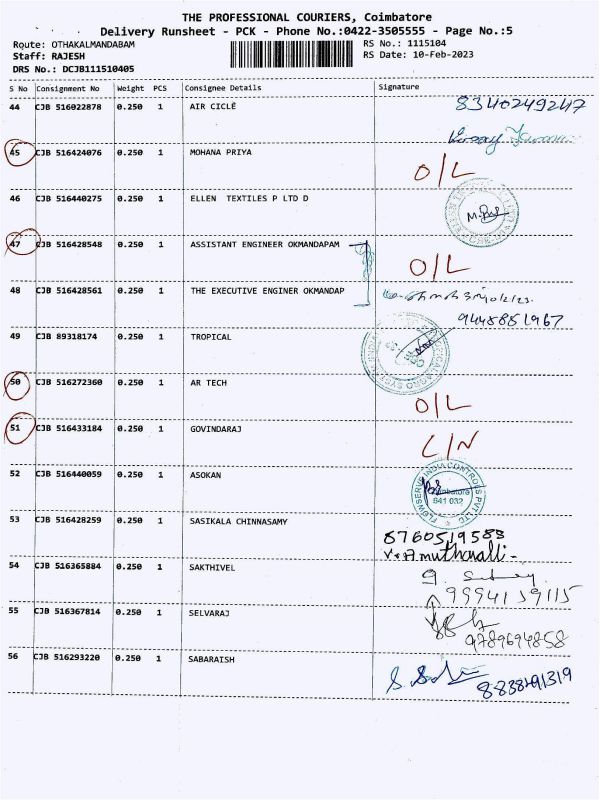 THE PROFESSIONAL COURIERS, Coimbatore
Delivery Runsheet - PCK - Phone No.:0422-3505555 - Page No.:5
Route: OTHAKALMANDABAM
RS No.: 1115104
Staff: RAJESH
RS Date: 10-Feb-2023
DRS No.: DCJB111510405
S No Consignment No Weight PCS Consignee Details Signature
44 CJB 516022878 0.250 1 AIR CICLE 8340249247
45 CJB 516424076 0.250 1 MOHANA PRIYA O/L
46 CJB 516440275 0.250 1 ELLEN TEXTILES P LTD D
47 CJB 516428548 0.250 1 ASSISTANT ENGINEER OKMANDAPAM O/L
48 CJB 516428561 0.250 1 THE EXECUTIVE ENGINER OKMANDAP
9445851967
49 CJB 89318174 0.250 1 TROPICAL
50 CJB 516272360 0.250 1 AR TECH O/L
51 CJB 516433184 0.250 1 GOVINDARAJ L/N
52 CJB 516440059 0.250 1 ASOKAN
FLOWSERVE INDIA CONTROLS PVT LTD
Coimbatore
641 032
53 CJB 516428259 0.250 1 SASIKALA CHINNASAMY 8760519588
54 CJB 516365884 0.250 1 SAKTHIVEL
9994159115
55 CJB 516367814 0.250 1 SELVARAJ
9789694858
56 CJB 516293220 0.250 1 SABARAISH